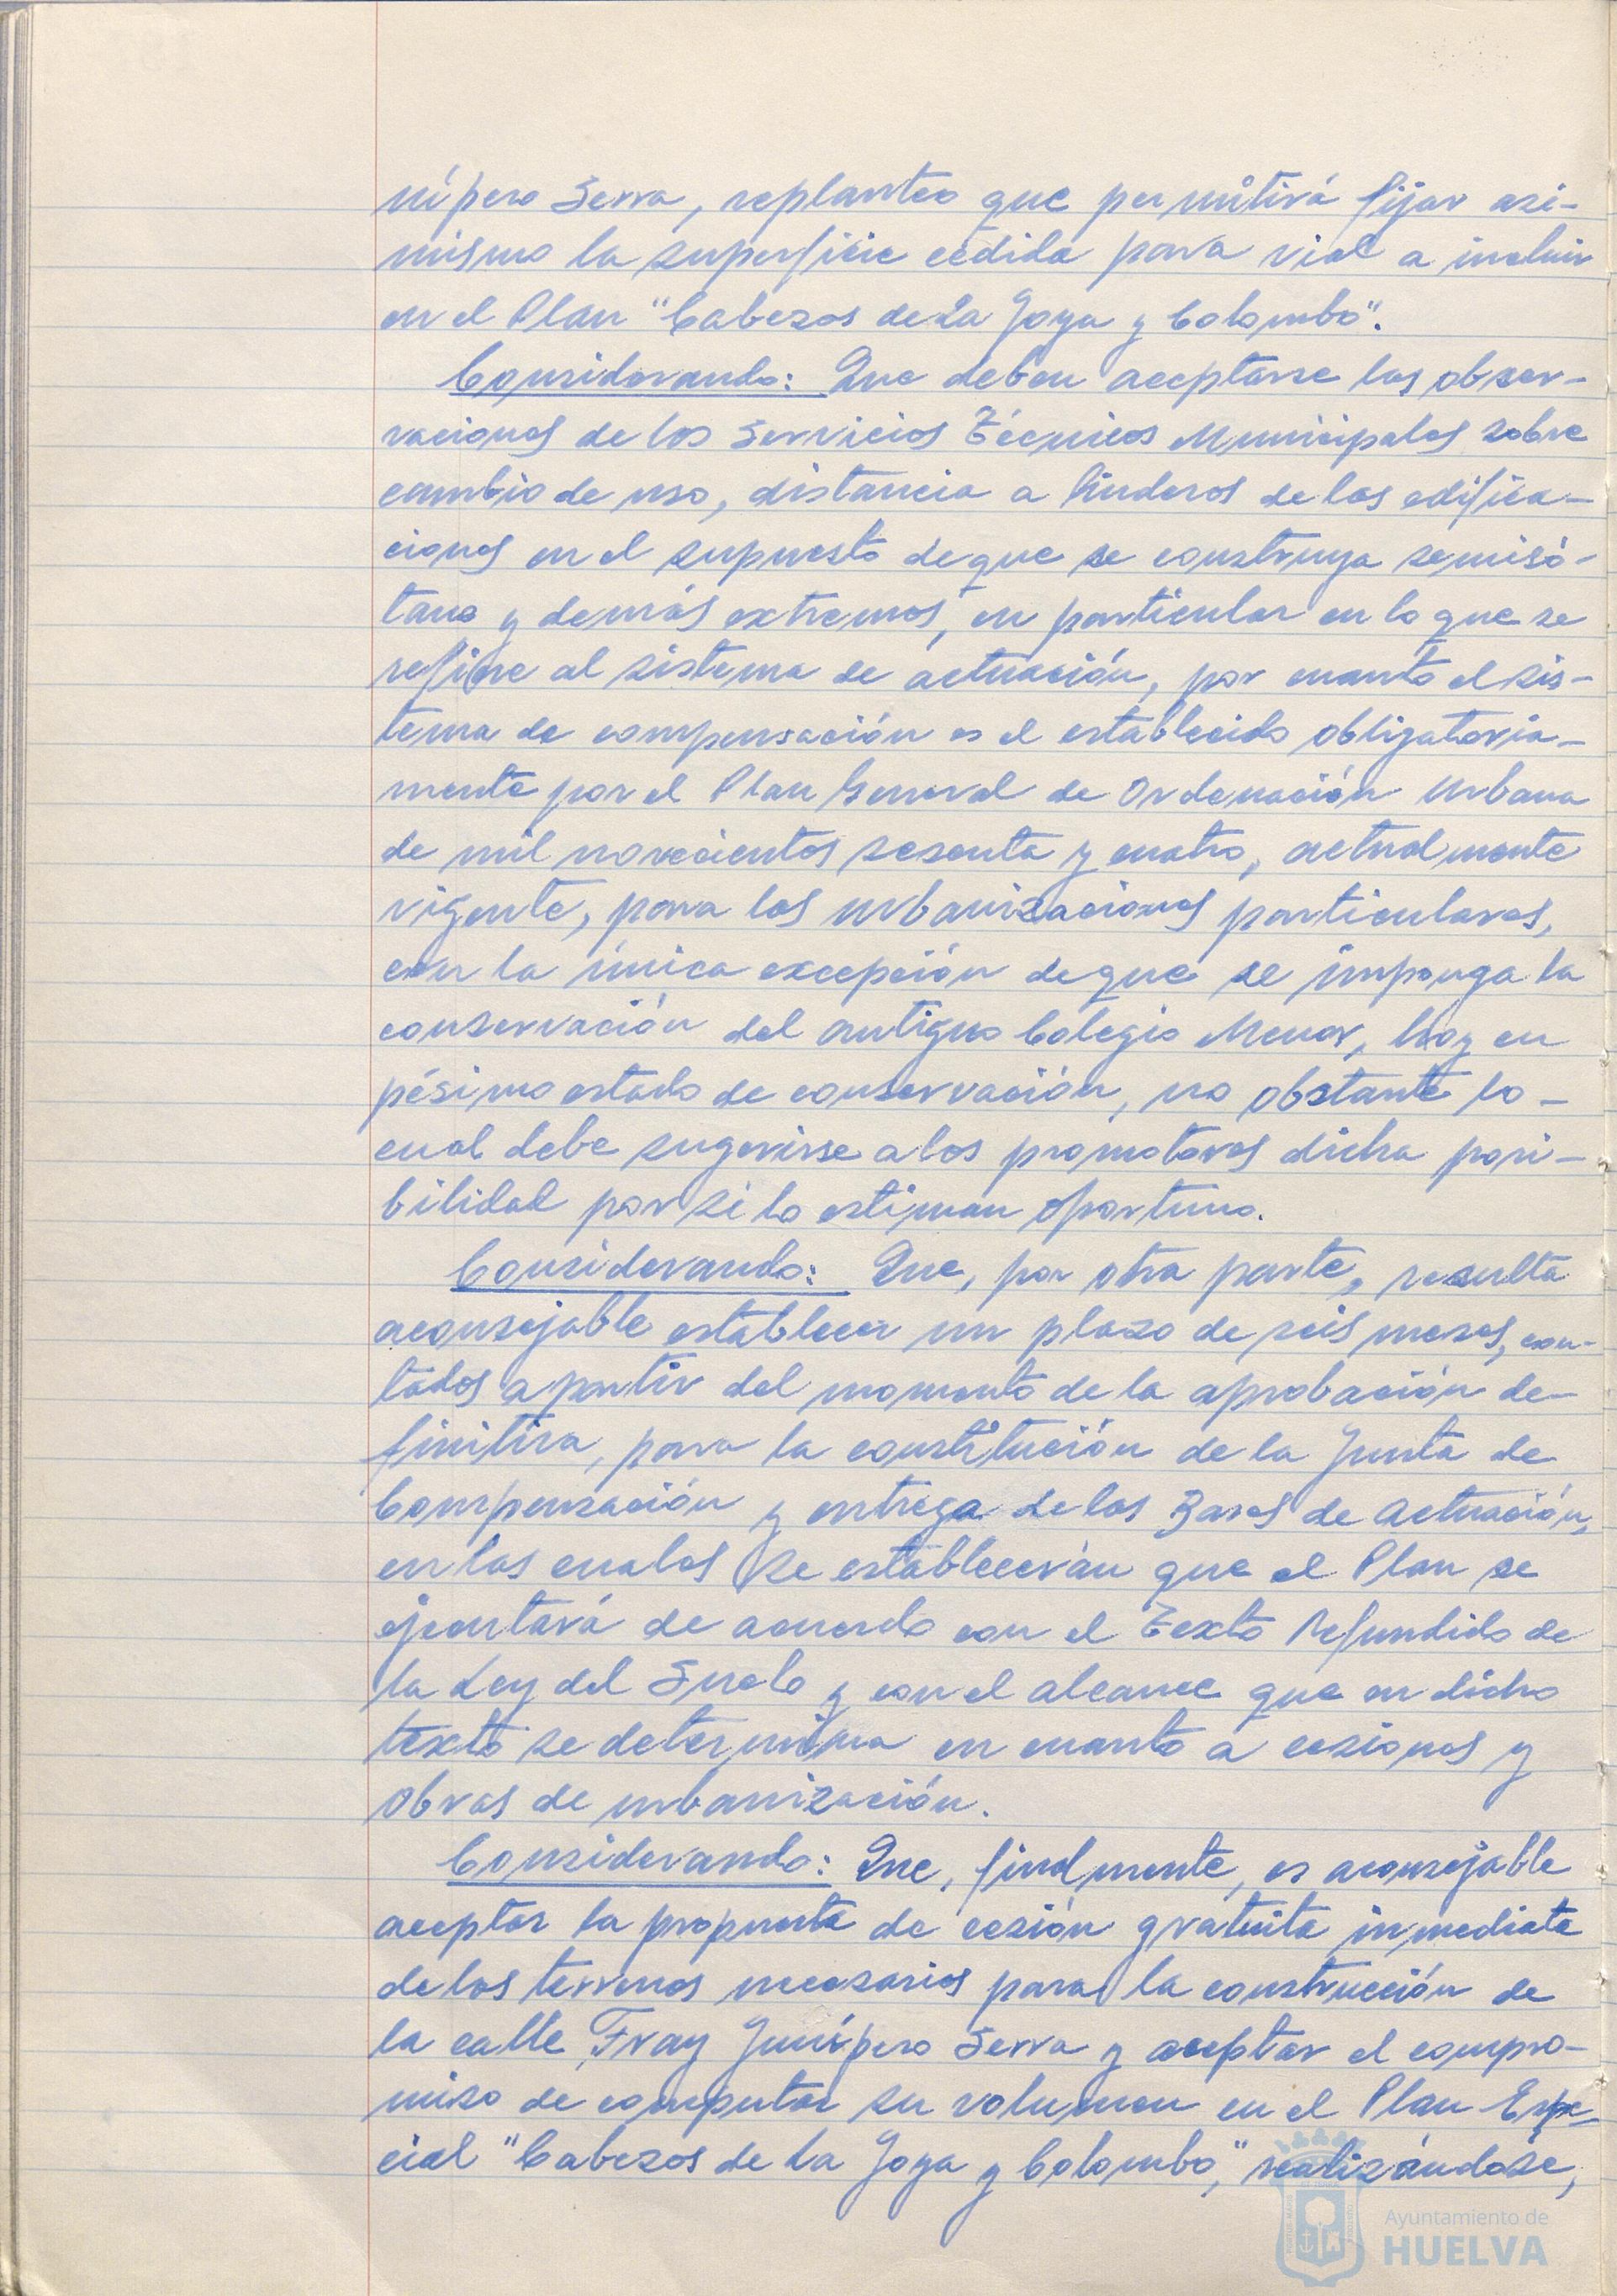 nípero Serra, replanteo que permitirá fijar asi-
mismo la superficie cedida para vial a incluir
en el Plan "Cabezos de La Joya y Colombo".
Considerando: Que deben aceptarse las obser-
vaciones de los Servicios Técnicos Municipales sobre
cambio de uso, distancia a linderos de las edifica-
ciones en el supuesto de que se construya semisó-
tano y demás extremos, en particular en lo que se
refiere al sistema de actuación, por cuanto el sis-
tema de compensación es el establecido obligatoria-
mente por el Plan General de Ordenación Urbana
de mil novecientos sesenta y cuatro, actualmente
vigente, para las urbanizaciones particulares,
con la única excepción de que se imponga la
conservación del antiguo Colegio Menor, hoy en
pésimo estado de conservación, no obstante lo-
cual debe sugerirse a los promotores dicha posi-
bilidad por si lo estiman oportuno.
Considerando: Que, por otra parte, resulta
aconsejable establecer un plazo de seis meses, con-
tados a partir del momento de la aprobación de-
finitiva, para la constitución de la Junta de
Compensación y entrega de las Bases de Actuación,
en las cuales se establecerán que el Plan se
ejecutará de acuerdo con el Texto Refundido de
la Ley del Suelo y con el alcance que en dicho
texto se determina en cuanto a cesiones y
obras de urbanización.
Considerando: Que, finalmente, es aconsejable
aceptar la propuesta de cesión gratuita inmediata
de los terrenos necesarios para la construcción de
la calle Fray Junípero Serra y aceptar el compro-
miso de computar su volumen en el Plan Espe-
cial "Cabezos de La Joya y Colombo", realizándose,
Ayuntamiento de
HUELVA